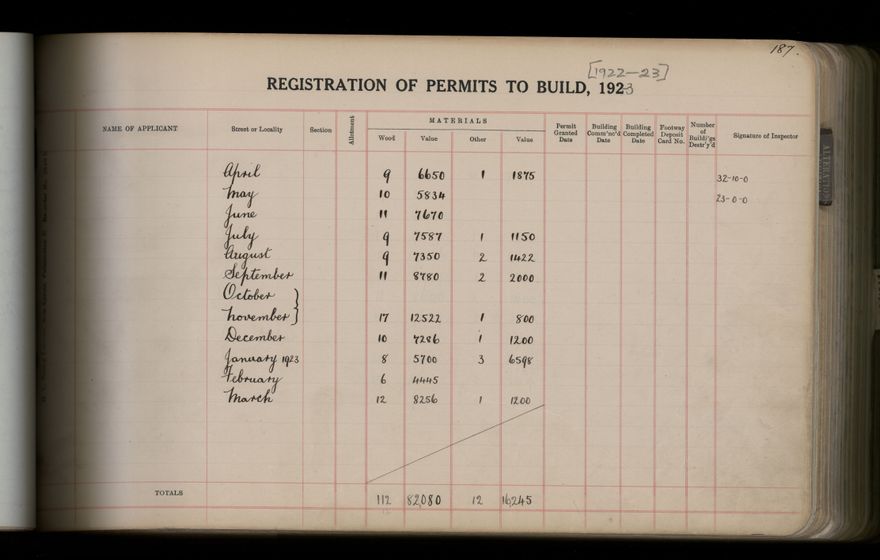 187.
[1922-23]
REGISTRATION OF PERMITS TO BUILD, 1923
NAME OF APPLICANT Street or Locality Section Allotment MATERIALS Wood Value Other Value Permit Granted Date Building Comm'nc'd Date Building Completed Date Footway Deposit Card No. Number of Buildi'gs Destr'y'd Signature of Inspector
April 9 6650 1 1875 32-10-0
May 10 5834 23-0-0
June 11 7670
July 9 7587 1 1150
August 9 7350 2 1422
September 11 8780 2 2000
October }
November } 17 12522 1 800
December 10 7286 1 1200
January 1923 8 5700 3 6598
February 6 4445
March 12 8256 1 1200
TOTALS 112 82,080 12 16,245
ALTERATION